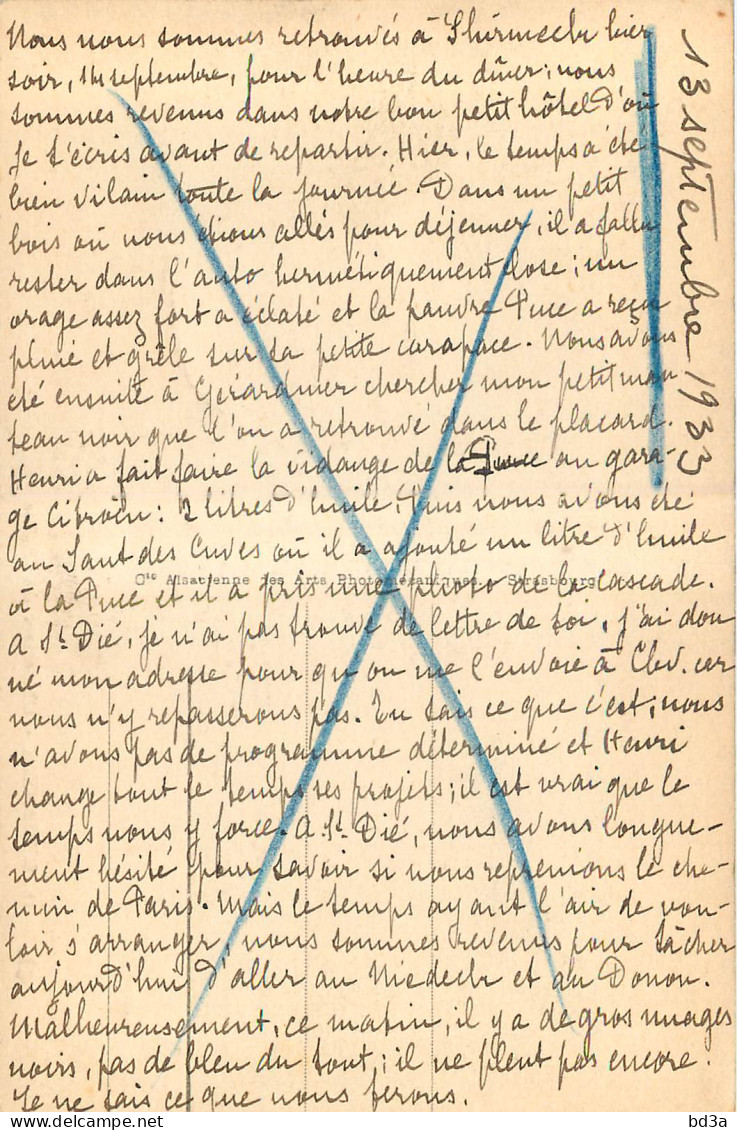 13 septembre 1933
Nous nous sommes retrouvés à Shirmeck hier
soir, 12 septembre, pour l'heure du dîner; nous
sommes revenus dans notre bon petit hôtel d'où
je t'écris avant de repartir. Hier, le temps a été
bien vilain toute la journée. Dans un petit
bois où nous étions allés pour déjeuner, il a fallu
rester dans l'auto hermétiquement close; un
orage assez fort a éclaté et la pauvre Puce a reçu
pluie et grêle sur sa petite carapace. Nous avons
été ensuite à Gérardmer chercher mon petit man
teau noir que l'on a retrouvé dans le placard.
Henri a fait faire la vidange de la Puce au gara-
ge Citroën: 2 litres d'huile. Puis nous avons été
au Saut des Cuves où il a ajouté un litre d'huile
Cie Alsacienne des Arts Photomécaniques. - Strasbourg
à la Puce et il a pris une photo de la cascade.
A St Dié, je n'ai pas trouvé de lettre de toi, j'ai don
né mon adresse pour qu'on me l'envoie à car
nous n'y repasserons pas. Tu sais ce que c'est; nous
n'avons pas de programme déterminé et Henri
change tout le temps ses projets; il est vrai que le
temps nous y force. A St Dié, nous avons longue-
ment hésité pour savoir si nous reprenions le che-
min de Paris. Mais le temps ayant l'air de vou-
loir s'arranger, nous sommes revenus pour tâcher
aujourd'hui d'aller au Niedeck et au Donon.
Malheureusement, ce matin, il y a de gros nuages
noirs, pas de bleu du tout; il ne pleut pas encore.
Je ne sais ce que nous ferons.
bd3a